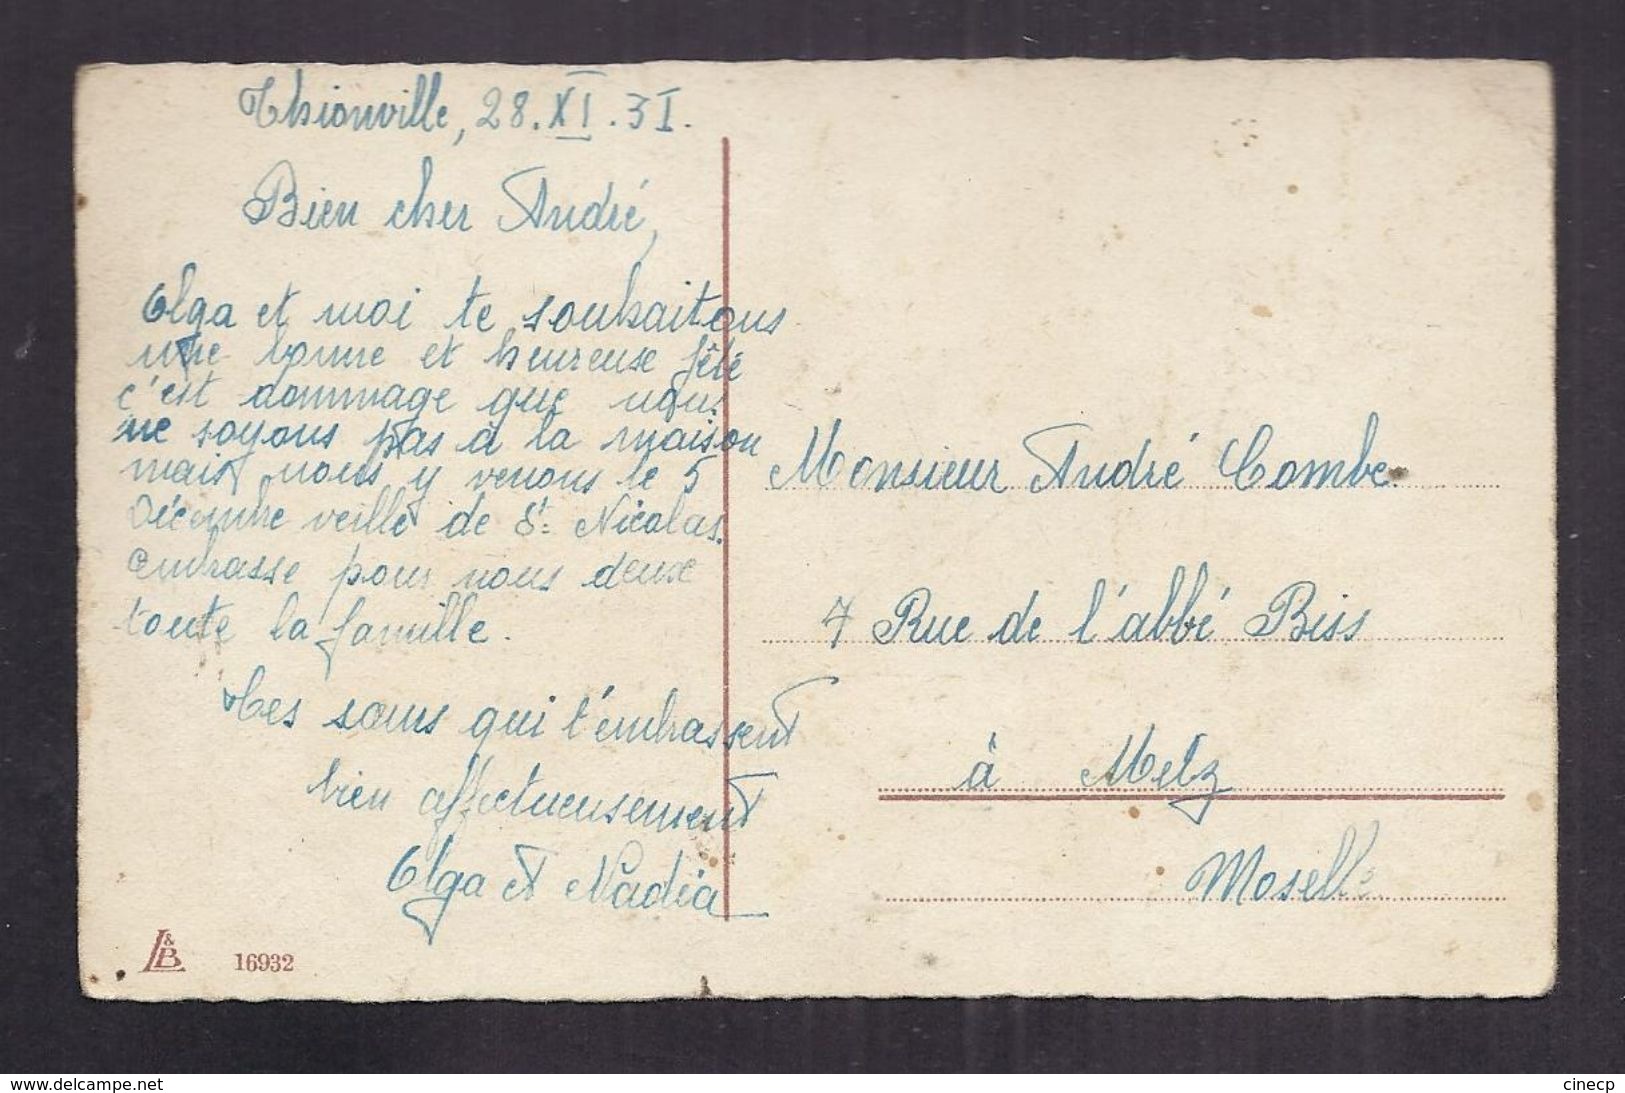 Thionville, 28.XI.31.
Bien cher André,
Olga et moi te souhaitons
une bonne et heureuse fête
c'est dommage que nous
ne soyons pas à la maison
mais nous y venons le 5
Décembre veille de St. Nicolas.
Embrasse pour nous deux
toute la famille.
Tes sœurs qui t'embrassent
bien affectueusement
Olga et Nadia
L&B 16932
Monsieur André Combe
7 Rue de l'abbé Biss
à Metz
Moselle
www.delcampe.net
cinecp